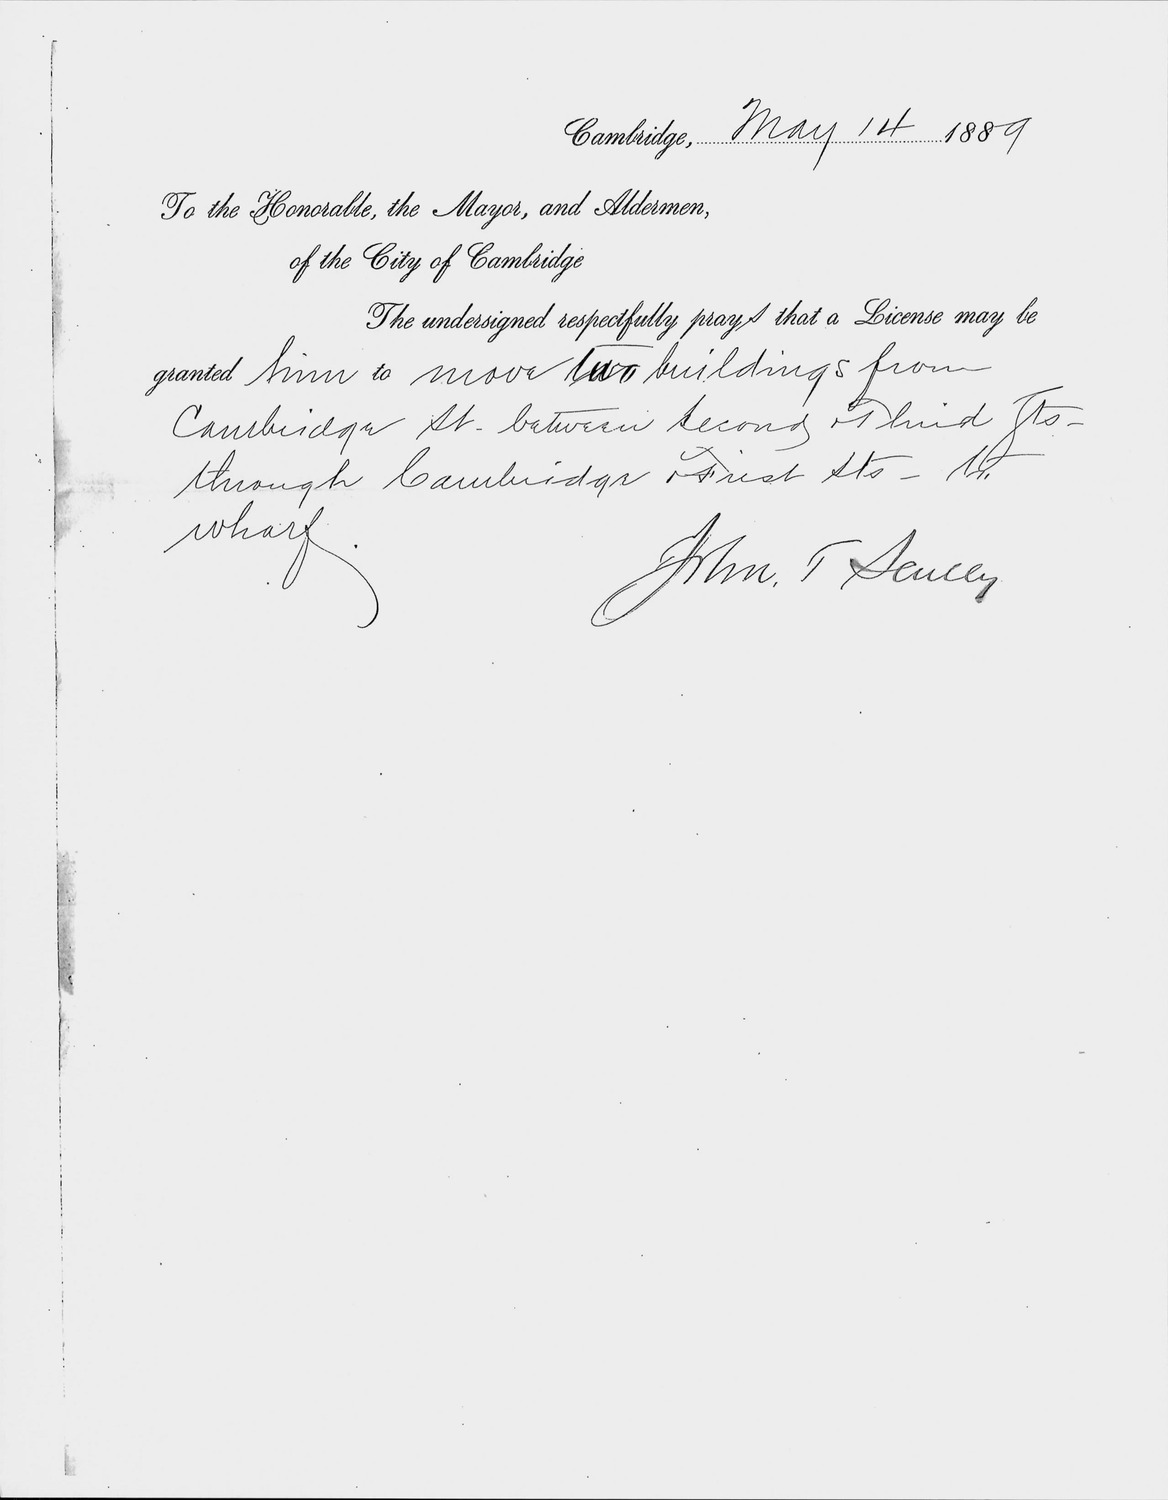 Cambridge, May 14 1889
To the Honorable, the Mayor, and Aldermen,
of the City of Cambridge
The undersigned respectfully prays that a License may be
granted him to move two buildings from
Cambridge St. between Second & Third Sts -
through Cambridge & First Sts - to
wharf.
John. T Scully